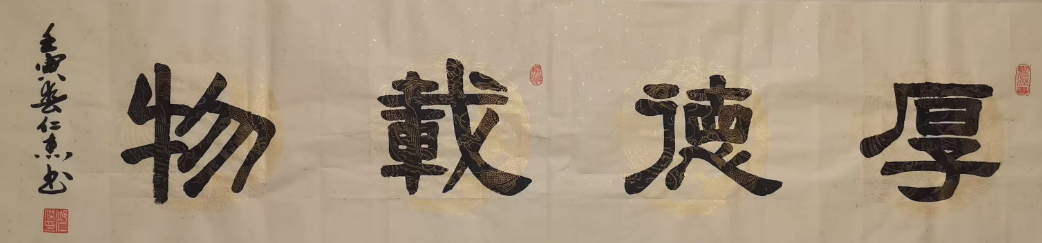 厚德載物
壬寅春仁杰书